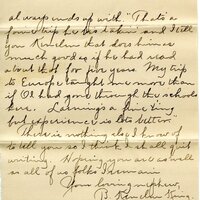 always ends up with "That's a
fine trip he has taken and I tell
you Kinchen that does him as
much good as if he had read
about that for five years. My trip
to Europe taught me more than
if I'd gone through the schools
here. Learning's a fine thing
but experience is lots better"
There is nothing else I know of
to tell you so I think I'd quit
writing. Hoping you are as well
as all of us folks I remain
Your loving nephew,
B. King.